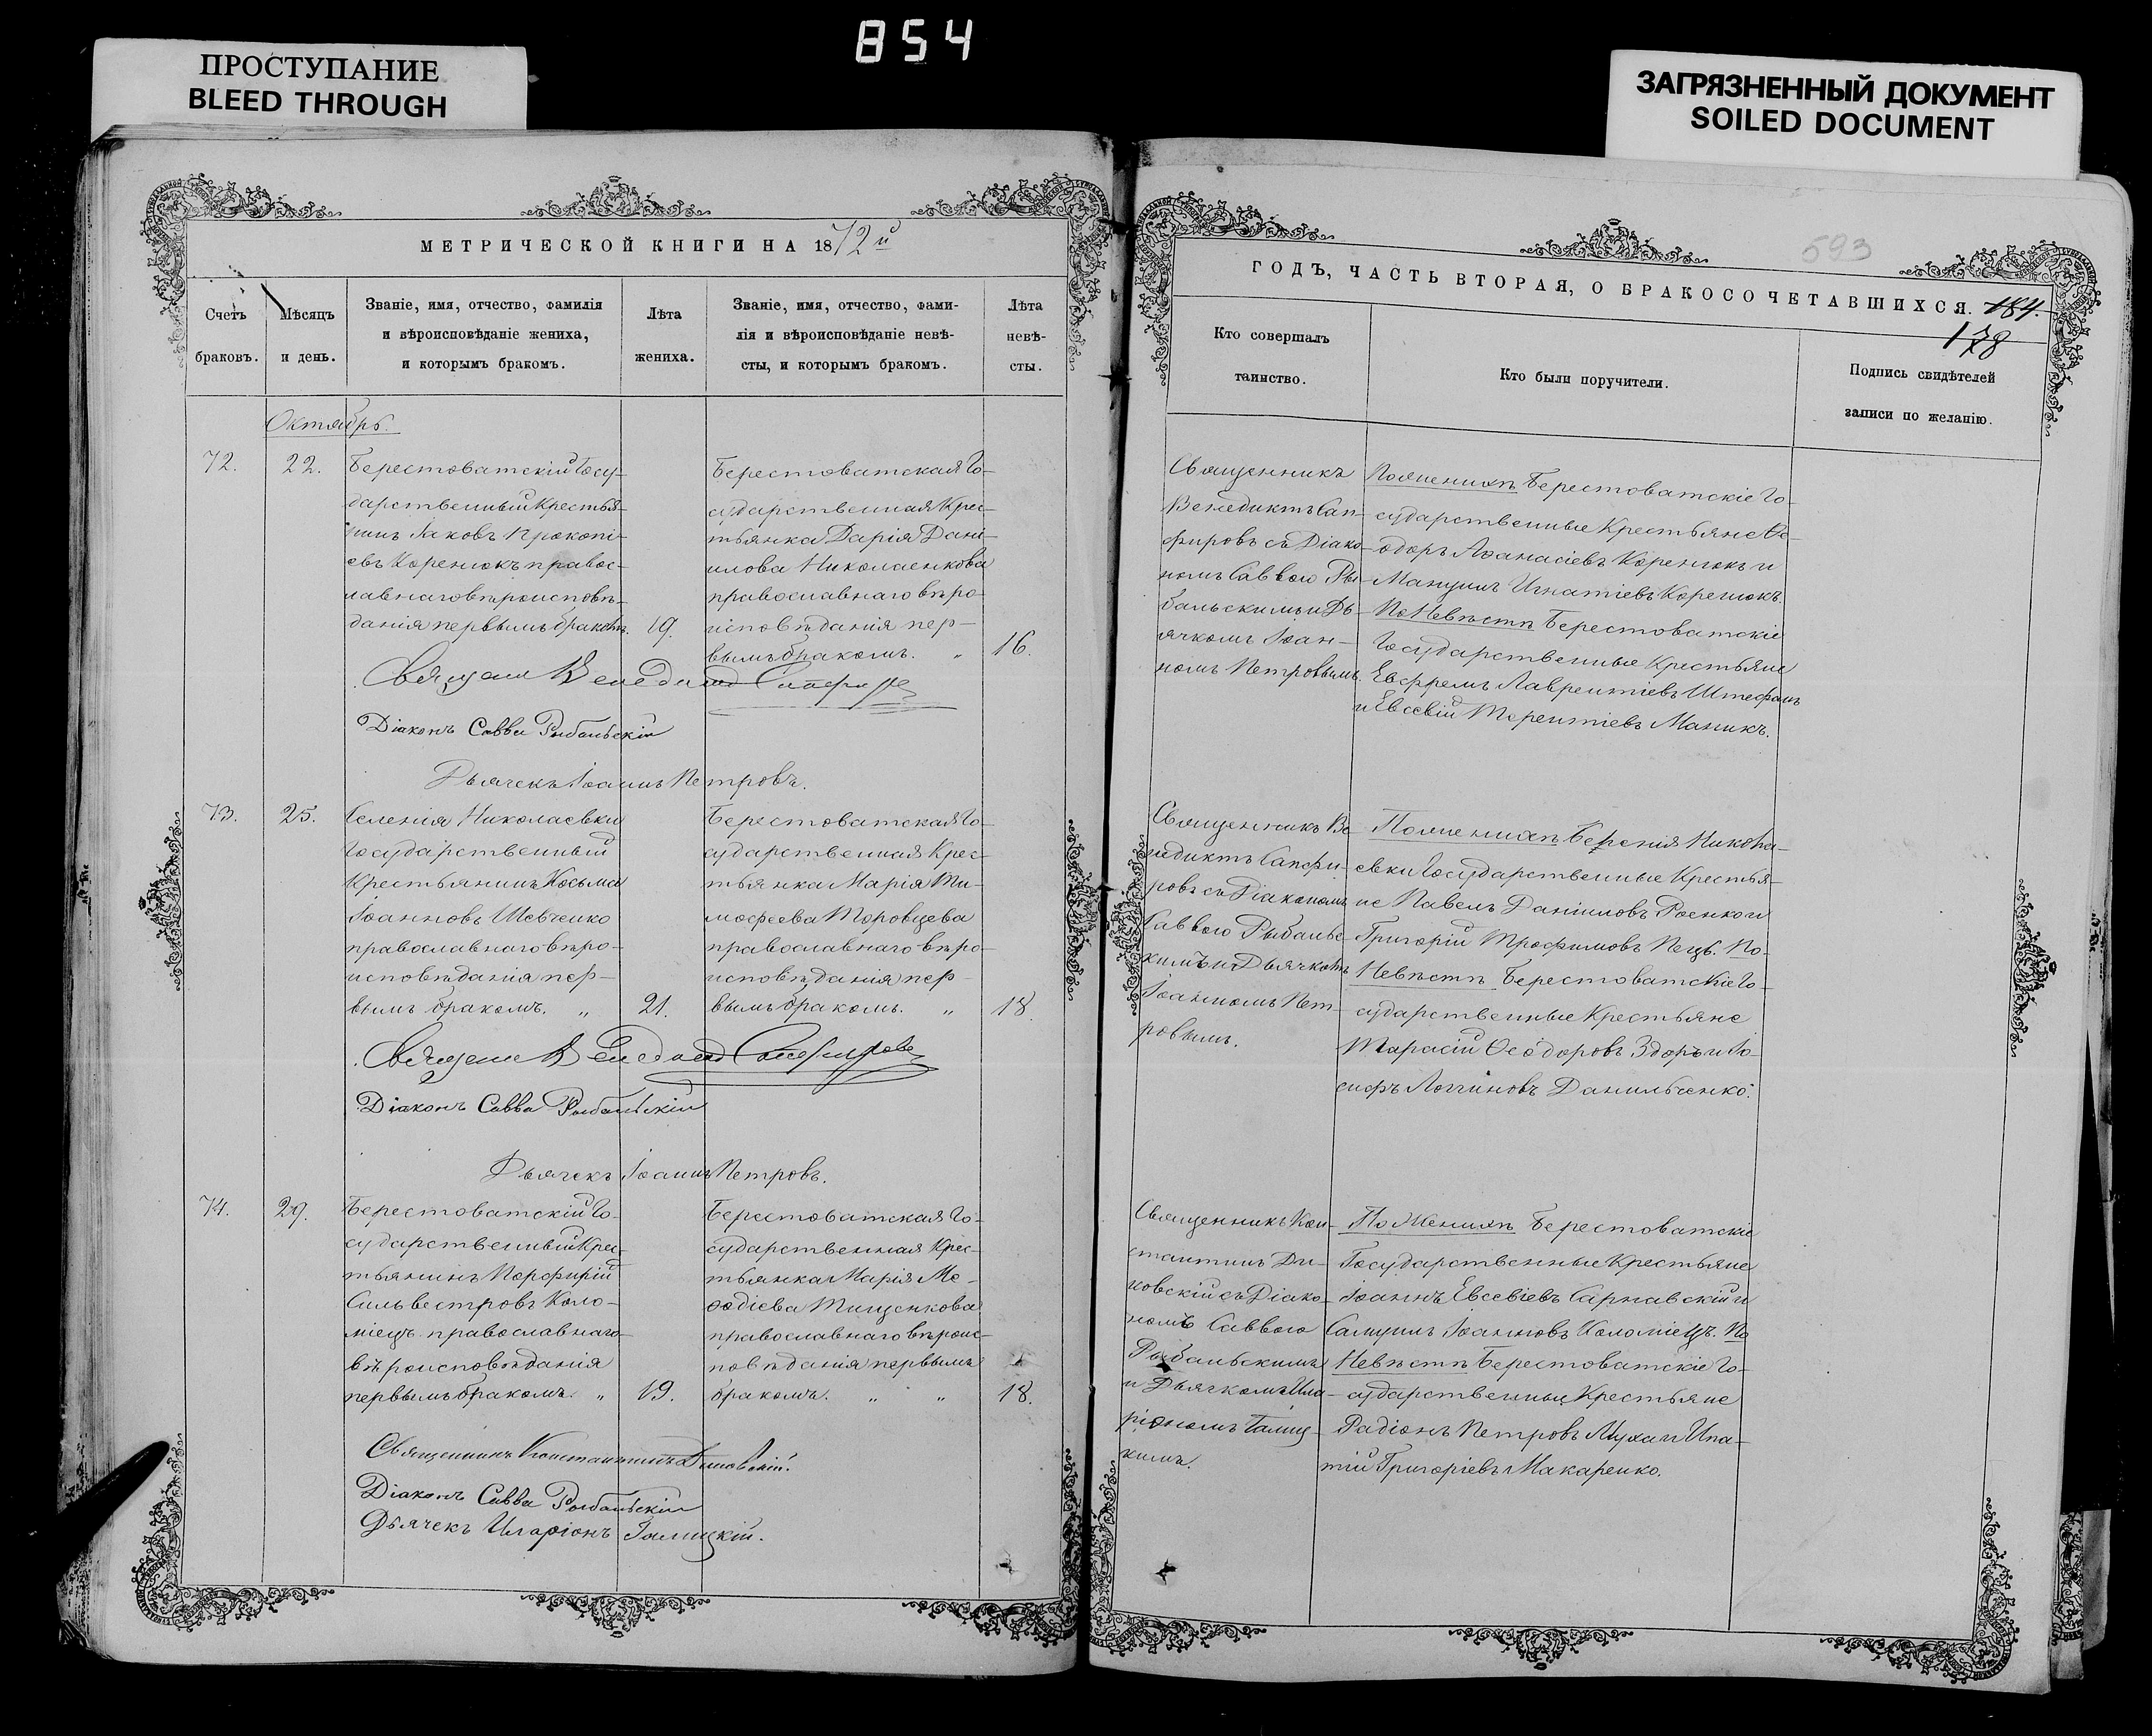 854
ПРОСТУПАНИЕ
BLEED THROUGH
ЗАГРЯЗНЕННЫЙ ДОКУМЕНТ
SOILED DOCUMENT
МЕТРИЧЕСКОЙ КНИГИ НА 1872й
Счетъ
браковъ.
Мѣсяцъ
и день.
Званіе, имя, отчество, фамилія
и вѣроисповѣданіе жениха,
и которымъ бракомъ.
Лѣта
жениха.
Званіе, имя, отчество, фами-
лія и вѣроисповѣданіе невѣ-
сты, и которымъ бракомъ.
Лѣта
невѣ-
сты.
Октябрь.
72.
22.
Берестоватскій Госу-
дарственный Крестья-
нинъ Іаковъ Прокопі-
евъ Коренюкъ правос-
лавнаго вѣроисповѣ-
данія первымъ бракомъ.
19.
Берестоватская Го-
сударственная Крес-
тьянка Дарія Дані-
илова Николаенкова
православнаго вѣро-
исповѣданія пер-
вымъ бракомъ. „
16.
Діаконъ Савва Рыбальскій
Дьячекъ Іоаннъ Петровъ.
73.
25.
Селенія Николаевки
Государственный
Крестьянинъ Косьма
Іоанновъ Шевченко
православнаго вѣро-
исповѣданія пер-
вымъ бракомъ. „
21.
Берестоватская Го-
сударственная Крес-
тьянка Марія Ти-
моѳеева Торовцева
православнаго вѣро-
исповѣданія пер-
вымъ бракомъ. „
18.
Діаконъ Савва Рыбальскій
Дьячекъ Іоаннъ Петровъ.
74.
29.
Берестоватскій Го-
сударственный Крес-
тьянинъ Порфирій
Сильвестровъ Коло-
міецъ православнаго
вѣроисповѣданія
первымъ бракомъ. „
19.
Берестоватская Го-
сударственная Крес-
тьянка Марія Ме-
ѳодіева Тищенкова
православнаго вѣроис-
повѣданія первымъ
бракомъ. „ „
18.
Священникъ Константинъ Диковскій.
Діаконъ Савва Рыбальскій
Дьячекъ Иларіонъ Галицкій.
593
ГОДЪ, ЧАСТЬ ВТОРАЯ, О БРАКОСОЧЕТАВШИХСЯ. 184.
178
Кто совершалъ
таинство.
Кто были поручители.
Подпись свидѣтелей
записи по желанію.
Священникъ
Венедиктъ Сап-
фировъ съ Діако-
номъ Саввою Ры-
бальскимъ и Дь-
ячкомъ Іоан-
номъ Петровымъ.
По женихѣ Берестоватскіе Го-
сударственные Крестьяне Ѳе-
одоръ Аѳанасіевъ Коренюкъ и
Мануилъ Игнатіевъ Коренюкъ.
По Невѣстѣ Берестоватскіе
Государственные Крестьяне
Евфремъ Лаврентіевъ Штефанъ
и Евсевій Терентіевъ Маникъ.
Священникъ Ве-
недиктъ Сапфи-
ровъ съ Діакономъ
Саввою Рыбальс-
кимъ и Дьячкомъ
Іоанномъ Пет-
ровымъ.
По женихѣ Никола-
евки Государственные Крестья-
не Павелъ Даніиловъ Роенко и
Григорій Трофимовъ Пецъ. По-
Невѣстѣ Берестоватскіе Го-
сударственные Крестьяне
Тарасій Ѳеодоровъ Здоръ и Іо-
сифъ Логгиновъ Данильченко.
Священникъ Кон-
стантинъ Ди-
ковскій съ Діако-
номъ Саввою
Рыбальскимъ
и Дьячкомъ Ила-
ріономъ Галиц-
кимъ.
По Женихѣ Берестоватскіе
Государственные Крестьяне
Іоаннъ Евсевіевъ Сарнавскій и
Самуилъ Іоанновъ Коломіецъ. По
Невѣстѣ Берестоватскіе Го-
сударственные Крестьяне
Радіонъ Петровъ Муха и Ипа-
тій Григоріевъ Макаренко.